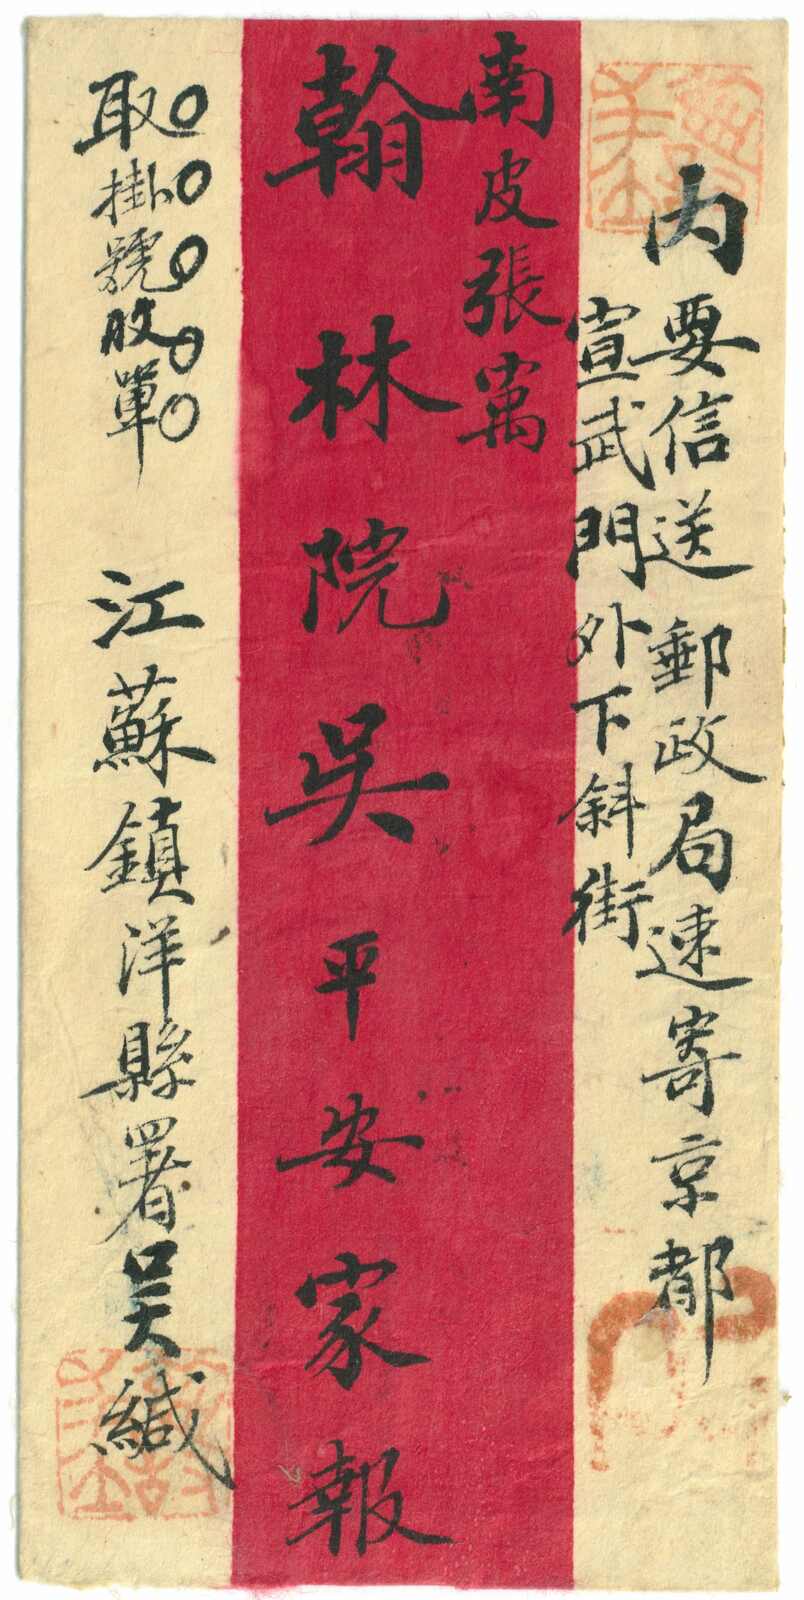 內要信送郵政局速寄京都
宣武門外下斜街
南皮張寓
翰林院吳平安家報
取掛號收單
江蘇鎮洋縣署吳緘